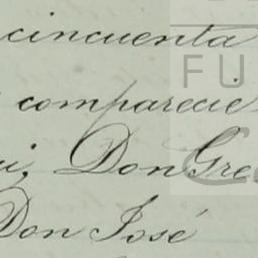 cincuenta
comparecie
ui, Don Gre
Don José
FU